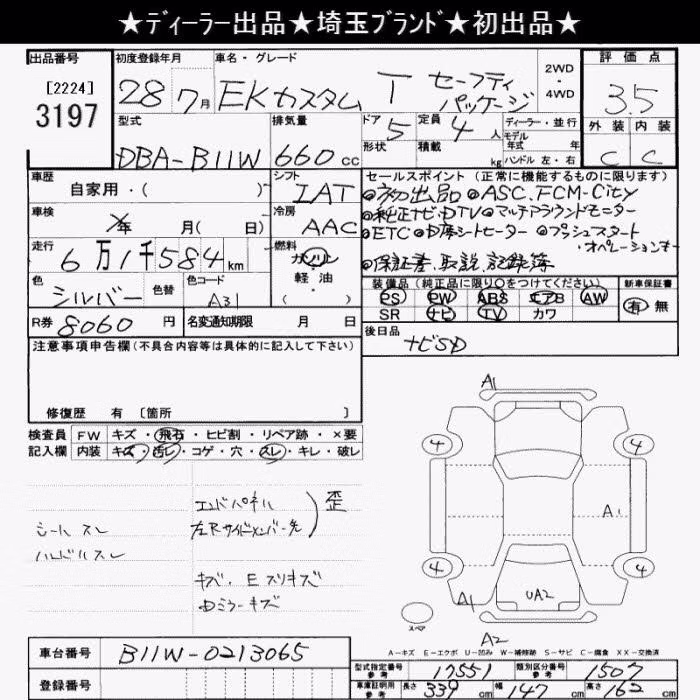 ★ディーラー出品★埼玉ブランド★初出品★
出品番号
[2224]
3197
初度登録年月
28 7月
車名・グレード
EKカスタム T セーフティ
パッケージ
2WD
・
4WD
評価点
3.5
外装 内装
C C
型式
DBA-B11W
排気量
660cc
ドア 5
形状
定員 4人
積載 kg
ディーラー・並行
モデル
年式 年
ハンドル 左・右
車歴
自家用・( )
シフト
IAT
車検
年 月( 日)
冷房
AAC
走行
6万1千584km
燃料
ガソリン
軽・油
( )
色
シルバー
色替
色コード
A31
R券 8060円
名変通知期限 月 日
セールスポイント(正常に機能するものに限ります)
◎初出品 ◎ASC,FCM-City
◎純正ナビ・DTV◎マルチアラウンドモニター
◎ETC ◎D席シートヒーター ◎プッシュスタート
・オペレーションキー
◎保証書、取説、記録簿
装備品(純正品に限り〇をつけてください)
PS PW ABS エアB AW
SR ナビ TV カワ
新車保証書
有 無
後日品
ナビSD
注意事項申告欄(不具合内容等は具体的に記入して下さい)
修復歴 有 [箇所 ]
検査員 FW キズ・飛石・ヒビ割・リペア跡・×要
記入欄 内装 キズ・汚レ・コゲ・穴・スレ・キレ・破レ
エンドパネル
左Rサイドメンバー先
歪
シート スレ
ハンドルスレ
キズ、E スリキズ
Dミラーキズ
A1
4 4
A1
4 4
UA2
A1
スペア
A2
A-キズ E-エクボ U-凹み W-補修跡 S-サビ C-腐食 XX-交換済
車台番号 B11W-0213065
登録番号
型式指定番号
参考
17551
類別区分番号
参考
1507
車庫証明用
参考
長さ 339cm 幅 147cm 高さ 162cm